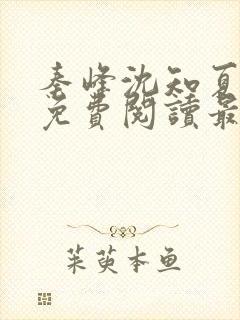 秦峰沈知夏
免費閱讀最
茱萸本鱼